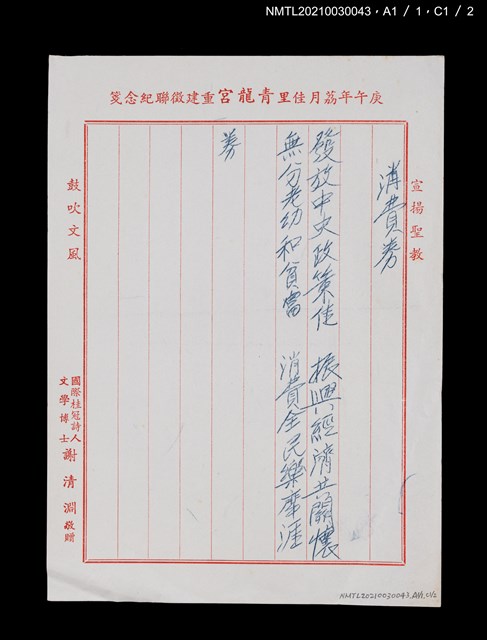 NMTL20210030043，A1 / 1，C1 / 2
庚午年荔月佳里青龍宮重建徵聯紀念箋
宣揚聖教
消費券
發放中央政策佳　振興經濟共關懷
無分老幼和貧富　消費全民樂無涯
券
鼓吹文風
國際桂冠詩人
文學博士
謝清淵敬贈
NMTL20210030043,A1/1,C1/2